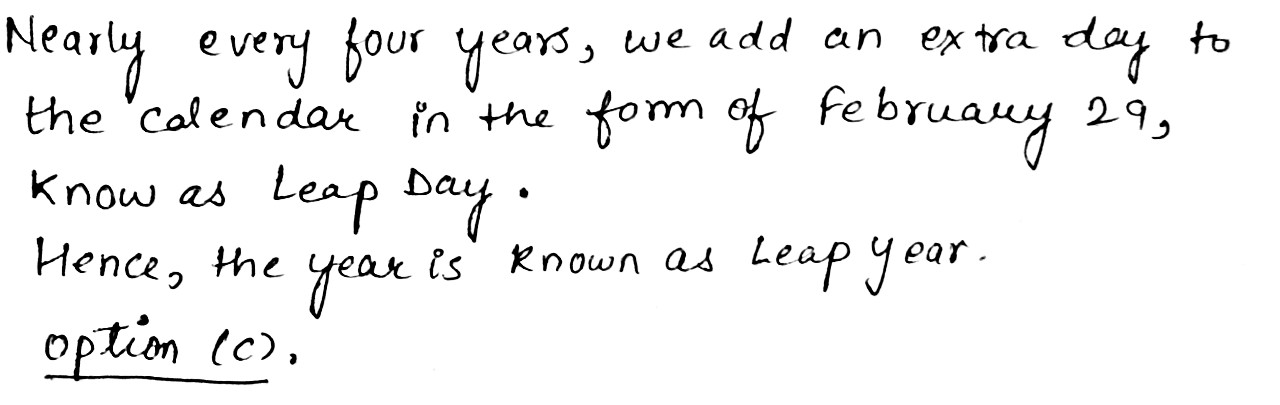 Nearly every four years, we add an extra day to
the calendar in the form of February 29,
Know as Leap Day.
Hence, the year is Known as Leap year.
option (c).